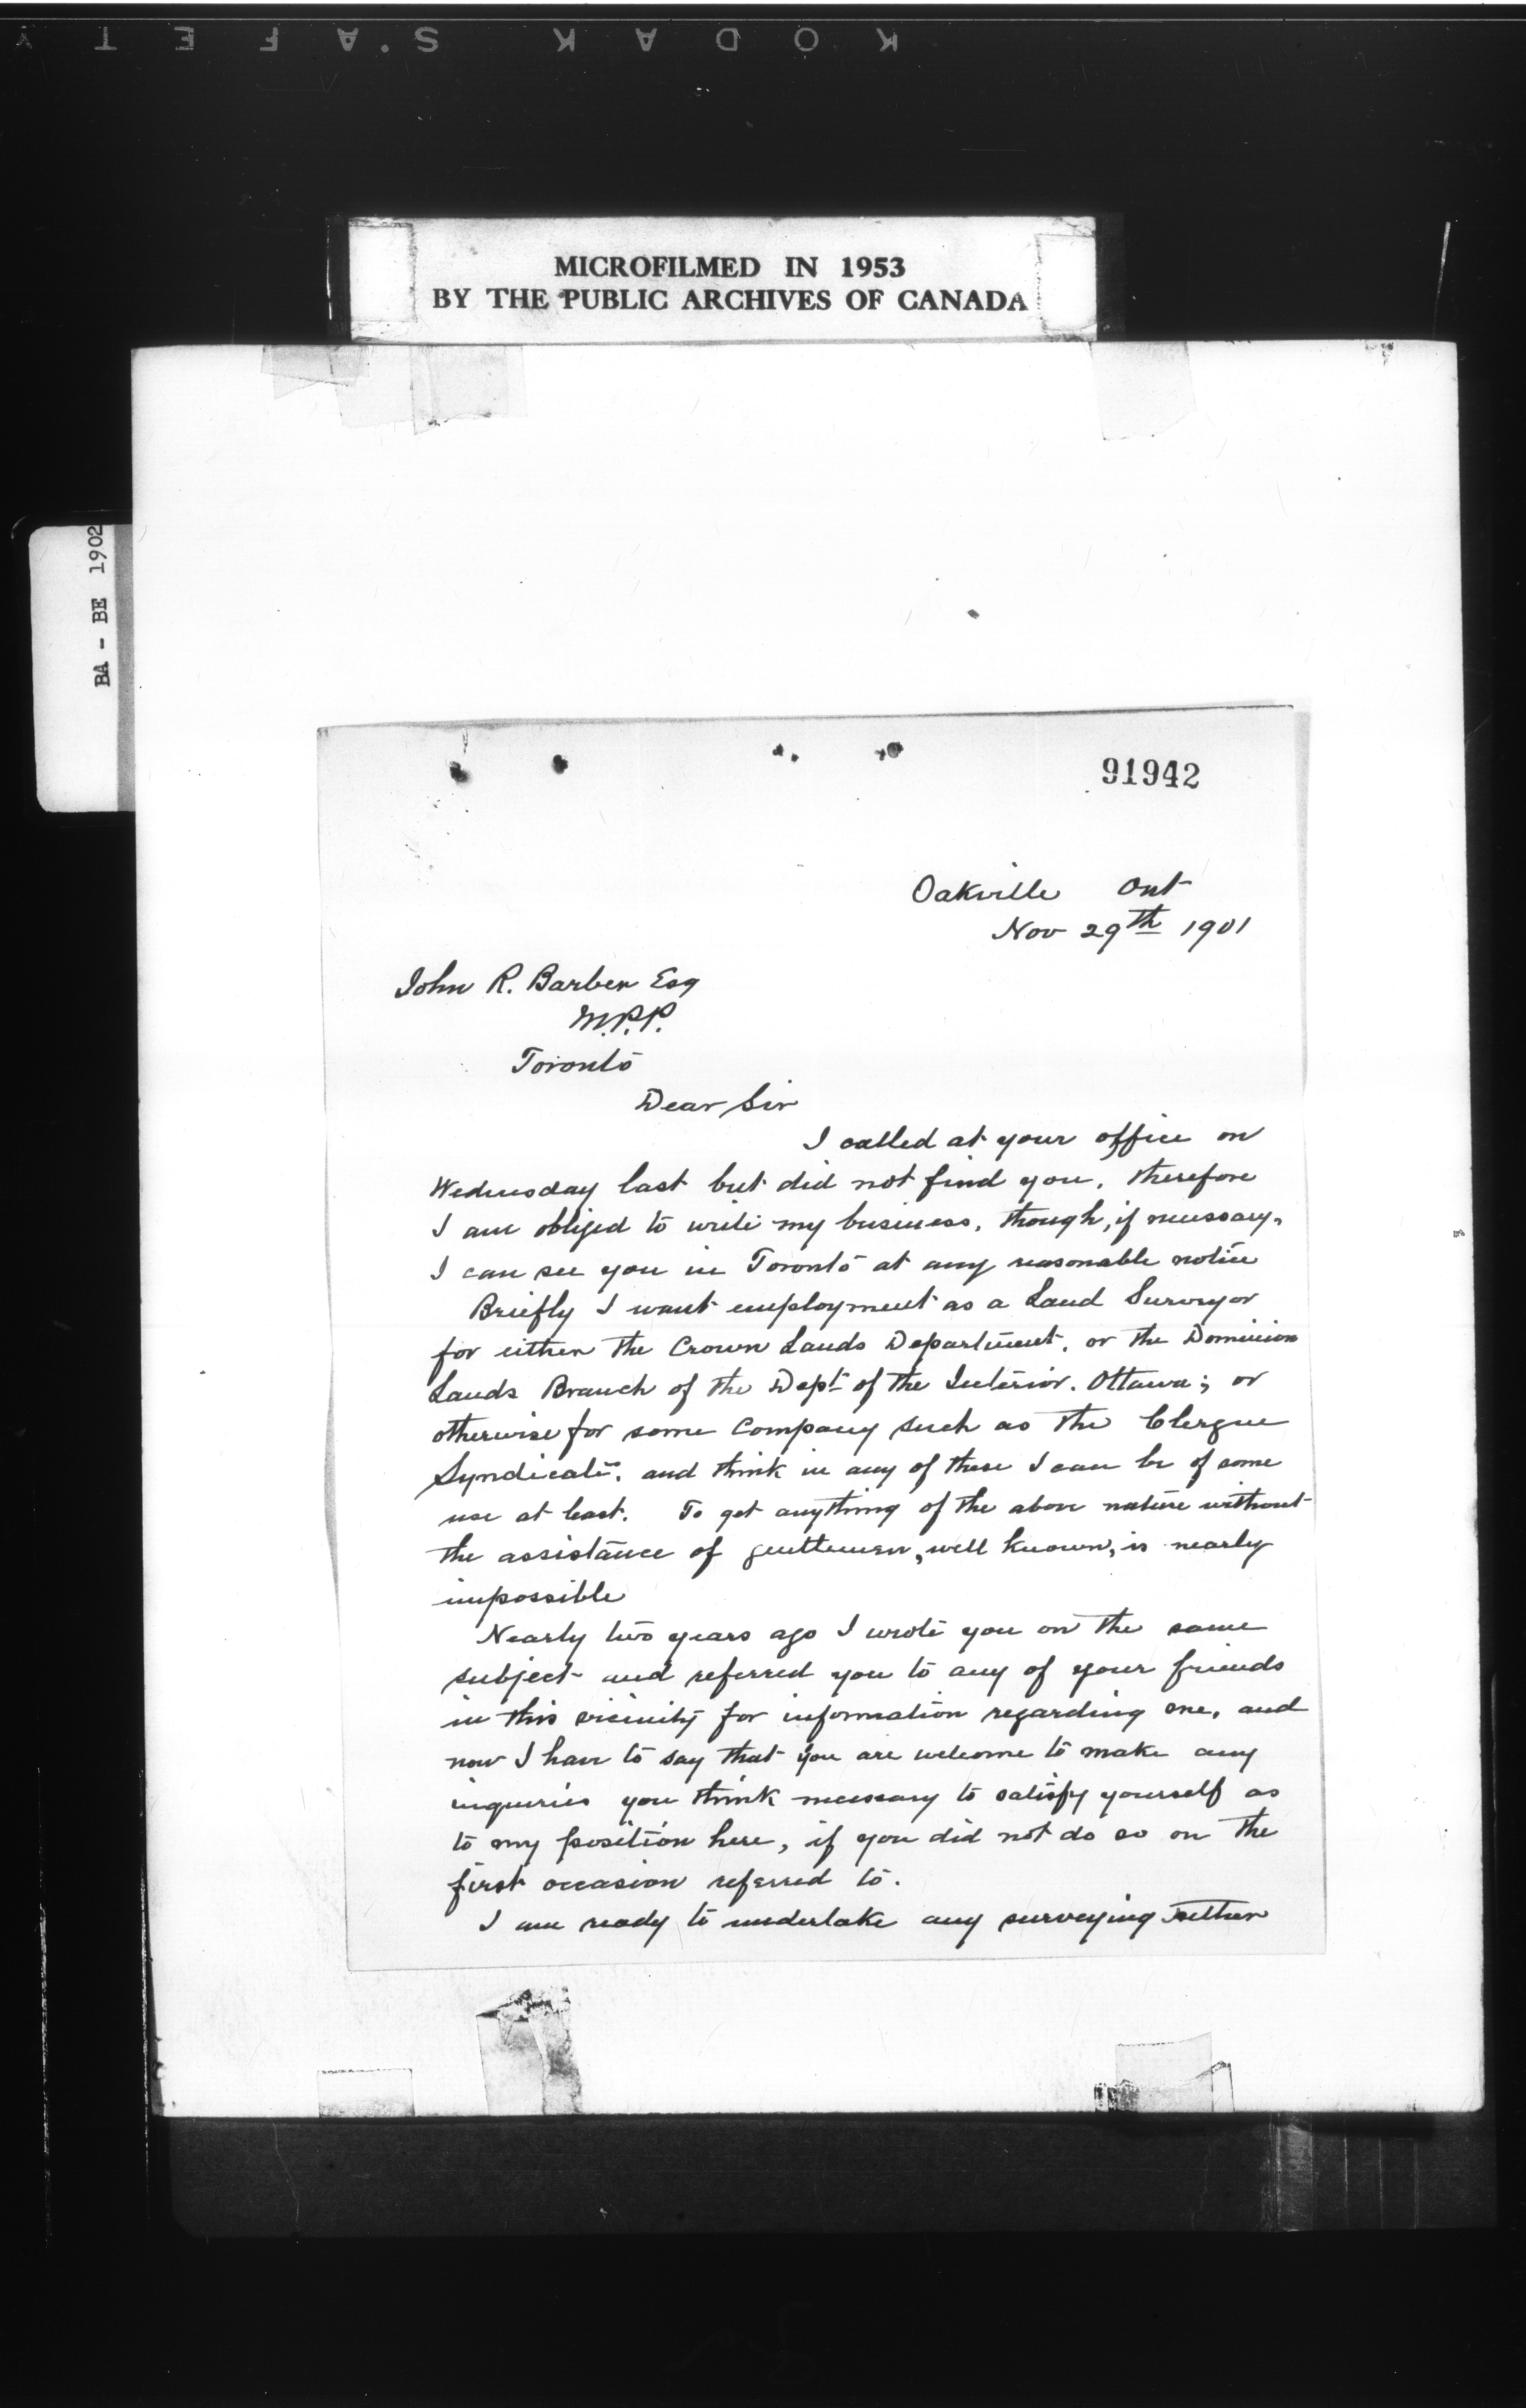 KODAK SAFETY
MICROFILMED IN 1953
BY THE PUBLIC ARCHIVES OF CANADA
BA - BE 1902
91942
Oakville Ont
Nov 29th 1901
John R. Barber Esq
M.P.P.
Toronto
Dear Sir
I called at your office on
Wednesday last but did not find you, therefore
I am obliged to write my business, though, if necessary,
I can see you in Toronto at any reasonable notice
Briefly I want employment as a Land Surveyor
for either the Crown Lands Department, or the Dominion
Lands Branch of the Dept of the Interior, Ottawa; or
otherwise for some Company such as the Clergue
Syndicate, and think in any of these I can be of some
use at least. To get anything of the above nature without
the assistance of gentlemen, well known, is nearly
impossible
Nearly two years ago I wrote you on the same
subject and referred you to any of your friends
in this vicinity for information regarding me, and
now I have to say that you are welcome to make any
inquiries you think necessary to satisfy yourself as
to my position here, if you did not do so on the
first occasion referred to.
I am ready to undertake any surveying either